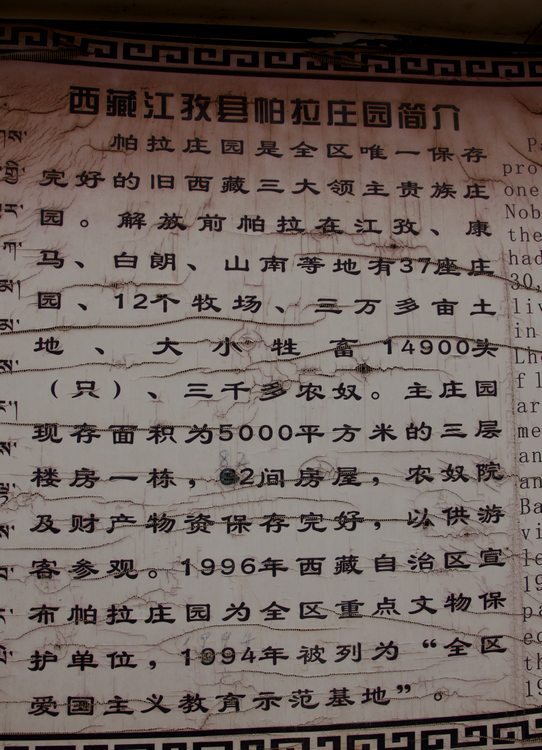 西藏江孜县帕拉庄园简介
帕拉庄园是全区唯一保存
完好的旧西藏三大领主贵族庄
园。解放前帕拉在江孜、康
马、白朗、山南等地有37座庄
园、12个牧场、三万多亩土
地、大小牲畜14900头
（只）、三千多农奴。主庄园
现存面积为5000平方米的三层
楼房一栋，82间房屋，农奴院
及财产物资保存完好，以供游
客参观。1996年西藏自治区宣
布帕拉庄园为全区重点文物保
护单位，1994年被列为“全区
爱国主义教育示范基地”。
Pa
pro
one
Nob
the
had
30,
liv
in
Lha
fl
ar
me
an
an
Ba
vi
le
19
pa
ec
th
19